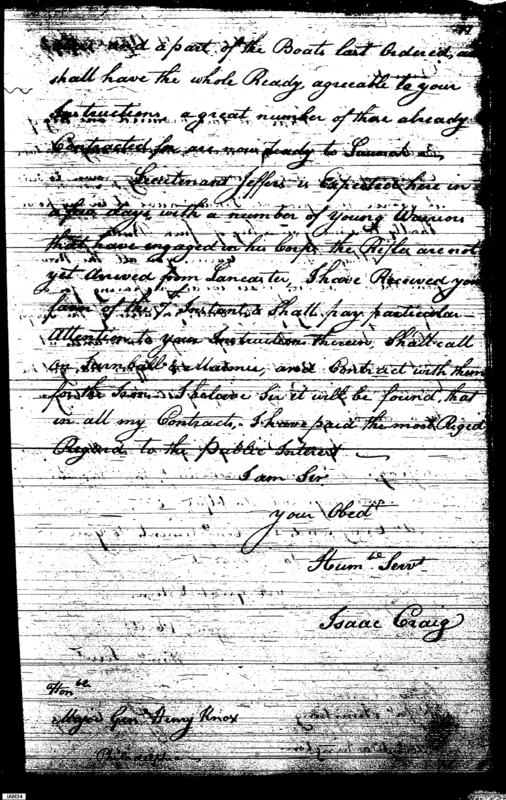 and a part of the Boats last Ordered,
shall have the whole Ready, agreeable to your
Instructions a great number of those already
Contracted for are now ready to Launch
Lieutenant Jeffers is Expected here in
a few days, with a number of Young Warriors
that have engaged in his Corps the Rifles are not
yet Arrived from Lancaster, I have Received your
favor of the 7th Instant & Shall pay particular
Attention to your Instruction therein, Shall call
on Turnbull & Marmie, and Contract with them
for the Iron. I believe Sir it will be found, that
in all my Contracts, I have paid the most Riged
Regard to the Public Interest
I am Sir
your Obedt
Humble Servt
Isaac Craig
Honble
Major Genl Henry Knox
Philadelphia
IAM34